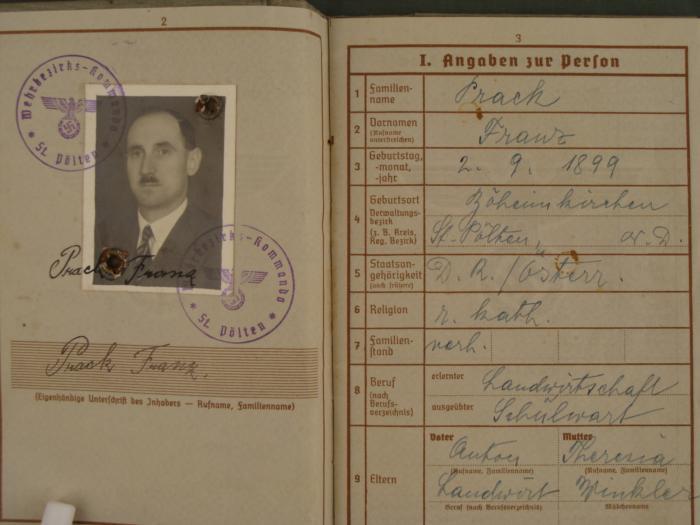 2
Wehrbezirks-Kommando
* St. Pölten *
Prack Franz
Wehrbezirks-Kommando
* St. Pölten *
Prack Franz.
(Eigenhändige Unterschrift des Inhabers — Rufname, Familienname)
3
I. Angaben zur Person
1 Familien-
name
Prack
2 Vornamen
(Rufname
unterstreichen)
Franz
3 Geburtstag,
-monat,
-jahr
2. 9. 1899
4 Geburtsort
Verwaltungs-
bezirk
(z. B. Kreis,
Reg. Bezirk)
Böheimkirchen
St. Pölten, N. D.
5 Staatsan-
gehörigkeit
(auch frühere)
D. R. / Österr.
6 Religion
r. kath.
7 Familien-
stand
verh.
8 Beruf
(nach
Berufs-
verzeichnis)
erlernter
Landwirtschaft
ausgeübter
Schulwart
9 Eltern
Vater
Anton
(Rufname, Familienname)
Landwirt
Beruf (nach Berufsverzeichnis)
Mutter
Theresia
(Rufname, Familienname)
Winkler
Mädchenname